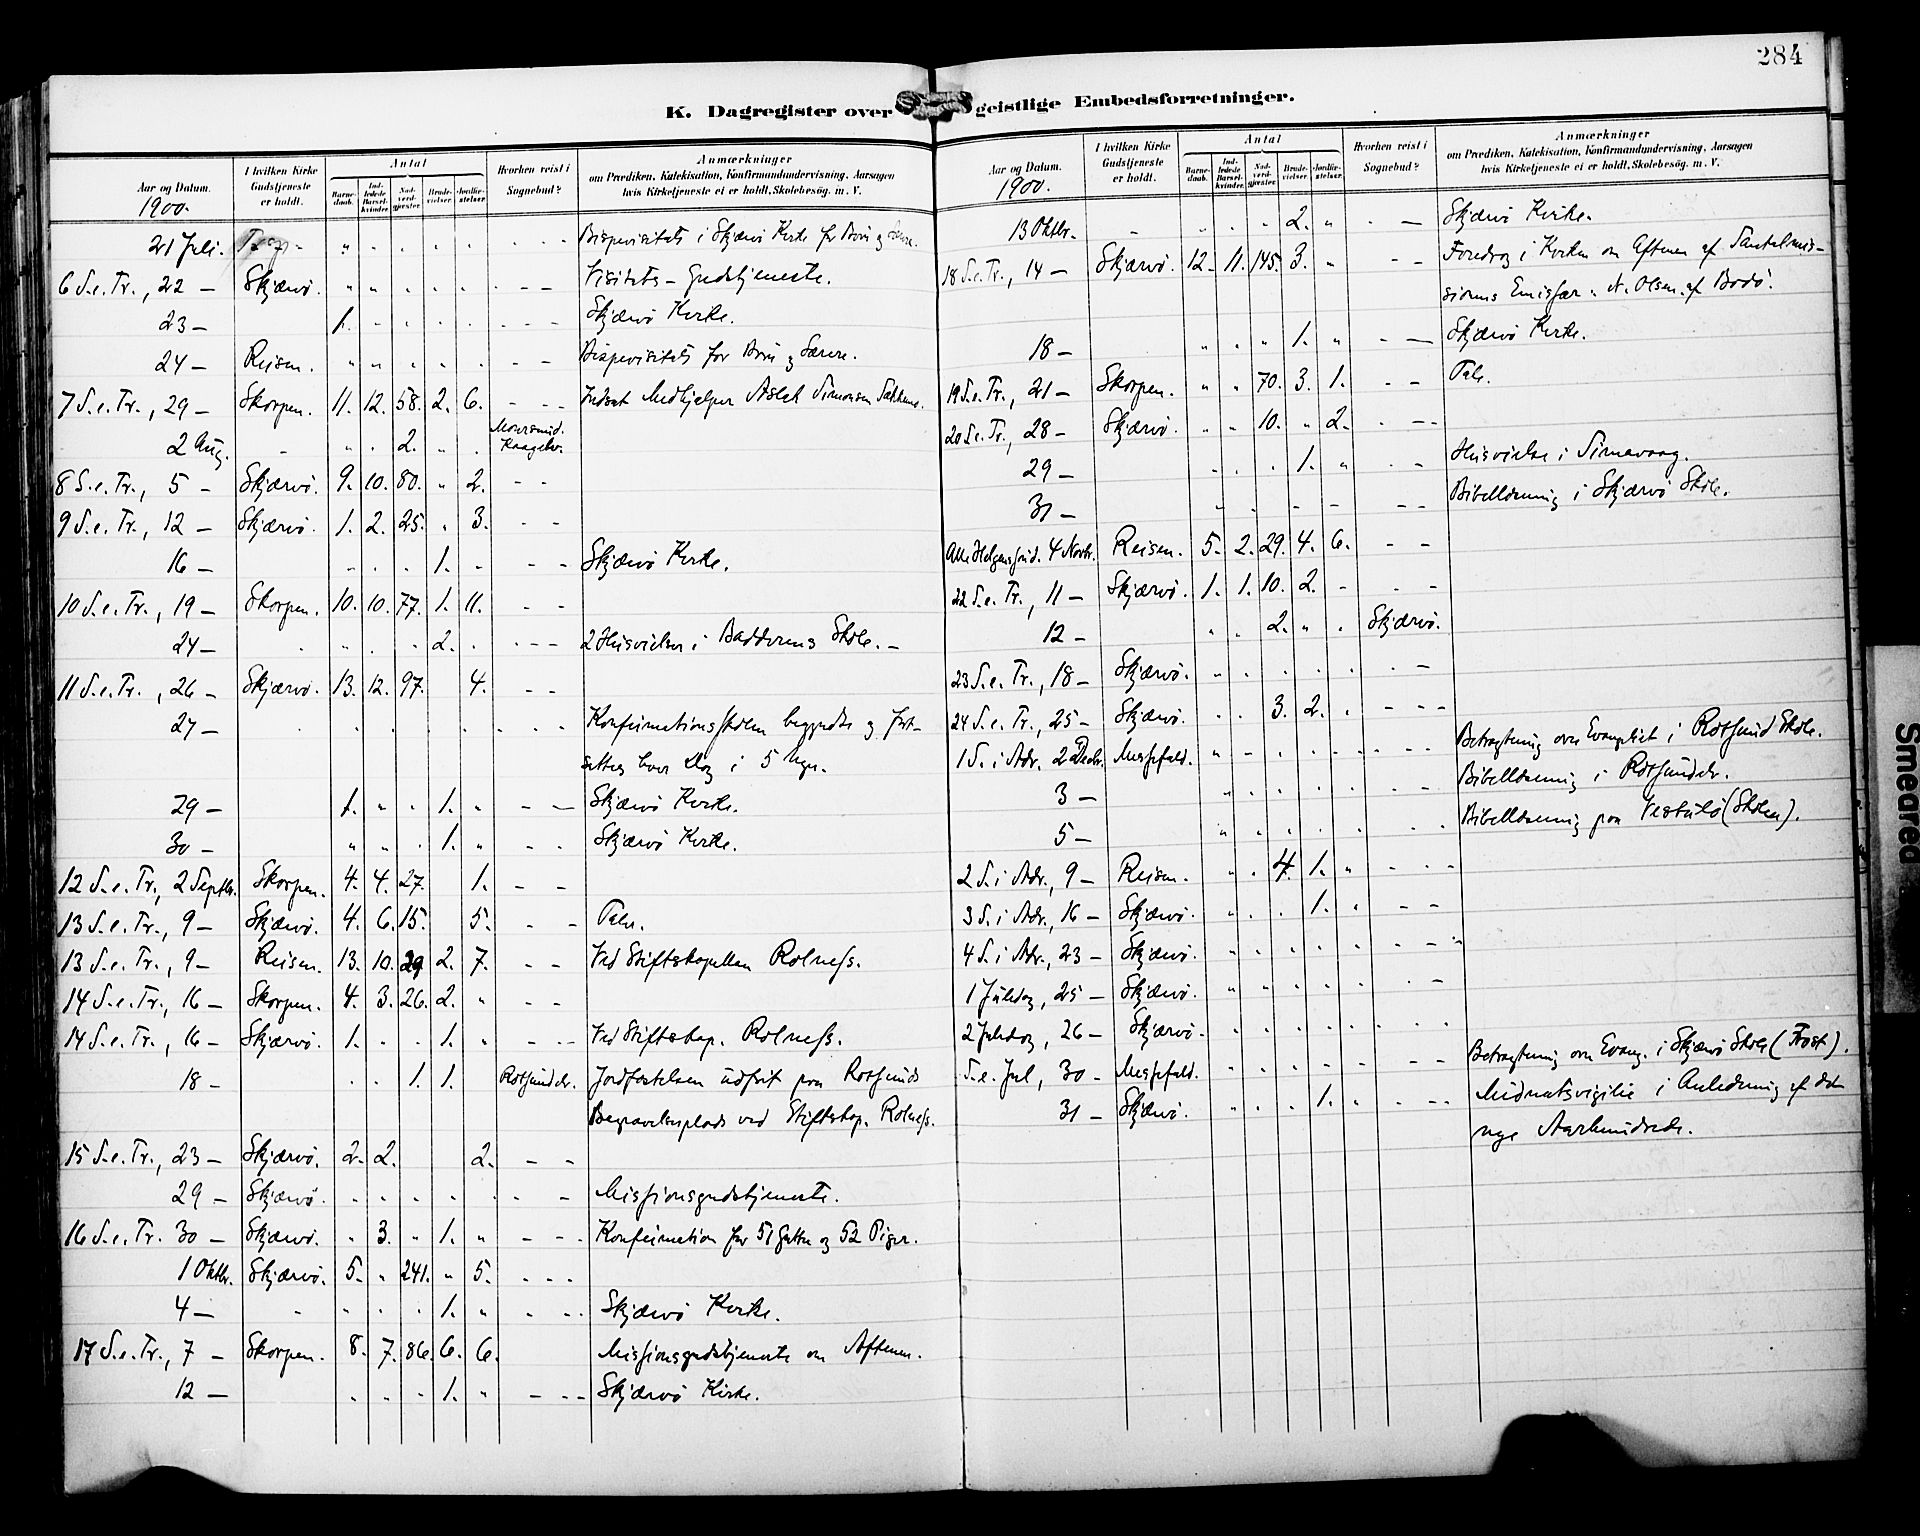 284
K. Dagregister over geistlige Embedsforretninger.
Aar og Datum. 1900.
I hvilken Kirke Gudstjeneste er holdt.
Antal
Barnedaab.
Indledede Barselkvinder.
Nadverdgjester.
Brudevielser.
Jordfæstelser.
Hvorhen reist i Sognebud?
Anmærkninger
om Prædiken, Katekisation, Konfirmandundervisning, Aarsagen
hvis Kirketjeneste ei er holdt, Skolebesøg. m. V.
21 Juli. " Bispevisitats i Skjærvö Kirke for Börn og Lærere.
6 S. e. Tr., 22 — Skjærvö. " " Visitats-Gudstjeneste.
23 — 1. Skjærvö Kirke.
24 — Reisen. " " Bispevisitats for Börn og Lærere.
7 S. e. Tr., 29 — Skorpen. 11. 12. 58. 2. 6. — Indsat Medhjelper Aslak Simonsen
2 Aug. — 2. " Maursund. Kaagelv.
8 S. e. Tr., 5 — Skjærvö. 9. 10. 80. " 2. — —
9 S. e. Tr., 12 — Skjærvö. 1. 2. 25. " 3. — —
16 — 1. — Skjærvö Kirke.
10 S. e. Tr., 19 — Skorpen. 10. 10. 77. 1. 11. — —
24 — 2. — Husvielser i Badderens Skole. —
11 S. e. Tr., 26 — Skjærvö. 13. 12. 97. 4. — —
27 — Konfirmationsskolen begyndte og fort-
sættes hver Dag i 5 Uger.
29 — 1. " 1. " — Skjærvö Kirke.
30 — " " 1. " — Skjærvö Kirke.
12 S. e. Tr., 2 Septbr. Skorpen. 4. 4. 27. 1. — —
13 S. e. Tr., 9 — Skjærvö. 4. 6. 15. 5. — Tale.
13 S. e. Tr., 9 — Reisen. 13. 10. 29 2. 7. — Ved Stiftskapellan Rolness.
14 S. e. Tr., 16 — Skorpen. 4. 3. 26. 2. " — —
14 S. e. Tr., 16 — Skjærvö. 1. 1. " — Ved Stiftskap. Rolness.
18 — 1. 1. Rotsundelv. Jordfæstelsen udfört paa Rotsunds
Begravelsesplads ved Stiftskap. Rolness.
15 S. e. Tr., 23 — Skjærvö. 2. 2. 2. — —
29 — Skjærvö. Missionsgudstjeneste.
16 S. e. Tr. 30 — Skjærvö. " 3. " 1. " — Konfirmation for 51 Gutter og 52 Piger.
1 Oktbr. Skjærvö. 5. " 241. " 5. — —
4 — 1. " — Skjærvö Kirke.
17 S. e. Tr., 7 — Skorpen. 8. 7. 86. 6. 6. Missionsgudstjeneste om Aftenen.
12 — 1. " — Skjærvö Kirke.
Aar og Datum. 1900.
I hvilken Kirke Gudstjeneste er holdt.
Antal
Barnedaab.
Indledede Barselkvinder.
Nadverdgjester.
Brudevielser.
Jordfæstelser.
Hvorhen reist i Sognebud?
Anmærkninger
om Prædiken, Katekisation, Konfirmandundervisning, Aarsagen
hvis Kirketjeneste ei er holdt, Skolebesög. m. V.
13 Oktbr. — 2. " — Skjærvö Kirke.
18 S. e. Tr., 14 — Skjærvö. 12. 11. 145. 3. " — Foredrag i Kirken om Aftenen af Santalmis-
sionens Emissær N. Olsen af Bodö.
18 — 1. " — Skjærvö Kirke.
19 S. e. Tr., 21 — Skorpen. " " 70. 3. 1. — Tale.
20 S. e. Tr., 28 — Skjærvö. " " 10. " 2. — —
29 — 1. " — Husvielse i Simavaag.
31 — Bibellæsning i Skjærvö Skole.
Alle Helgensfsd. 4 Novbr. Reisen. 5. 2. 29. 4. 6. — —
22 S. e. Tr., 11 — Skjærvö. 1. 1. 10. 2. — —
12 — 2. " Skjærvö.
23 S. e. Tr., 18 — Skjærvö. —
24 S. e. Tr., 25 — Skjærvö. 3. 2. — —
1 S. i Adv. 2 Decbr. Messefald. Betragtning over Evangeliet i Rotsund Skole.
3 — Bibellæsning i Rotsundelv.
5 — Bibellæsning paa (Skolen).
2 S. i Adv., 9 — Reisen. " 4. 1. " — —
3 S. i Adv., 16 — Skjærvö. 1. — —
4 S. i Adv., 23 — Skjærvö. — —
1 Juledag, 25 — Skjærvö. — —
2 Juledag, 26 — Skjærvö.
S. e. Jul, 30 — Messefald. Betragtning over Evang. i Skjærvö Skole (Frost).
31 — Skjærvö. 1. " — Midnatsvigilie i Anledning af det
nye Aarhundrede.
Smeared